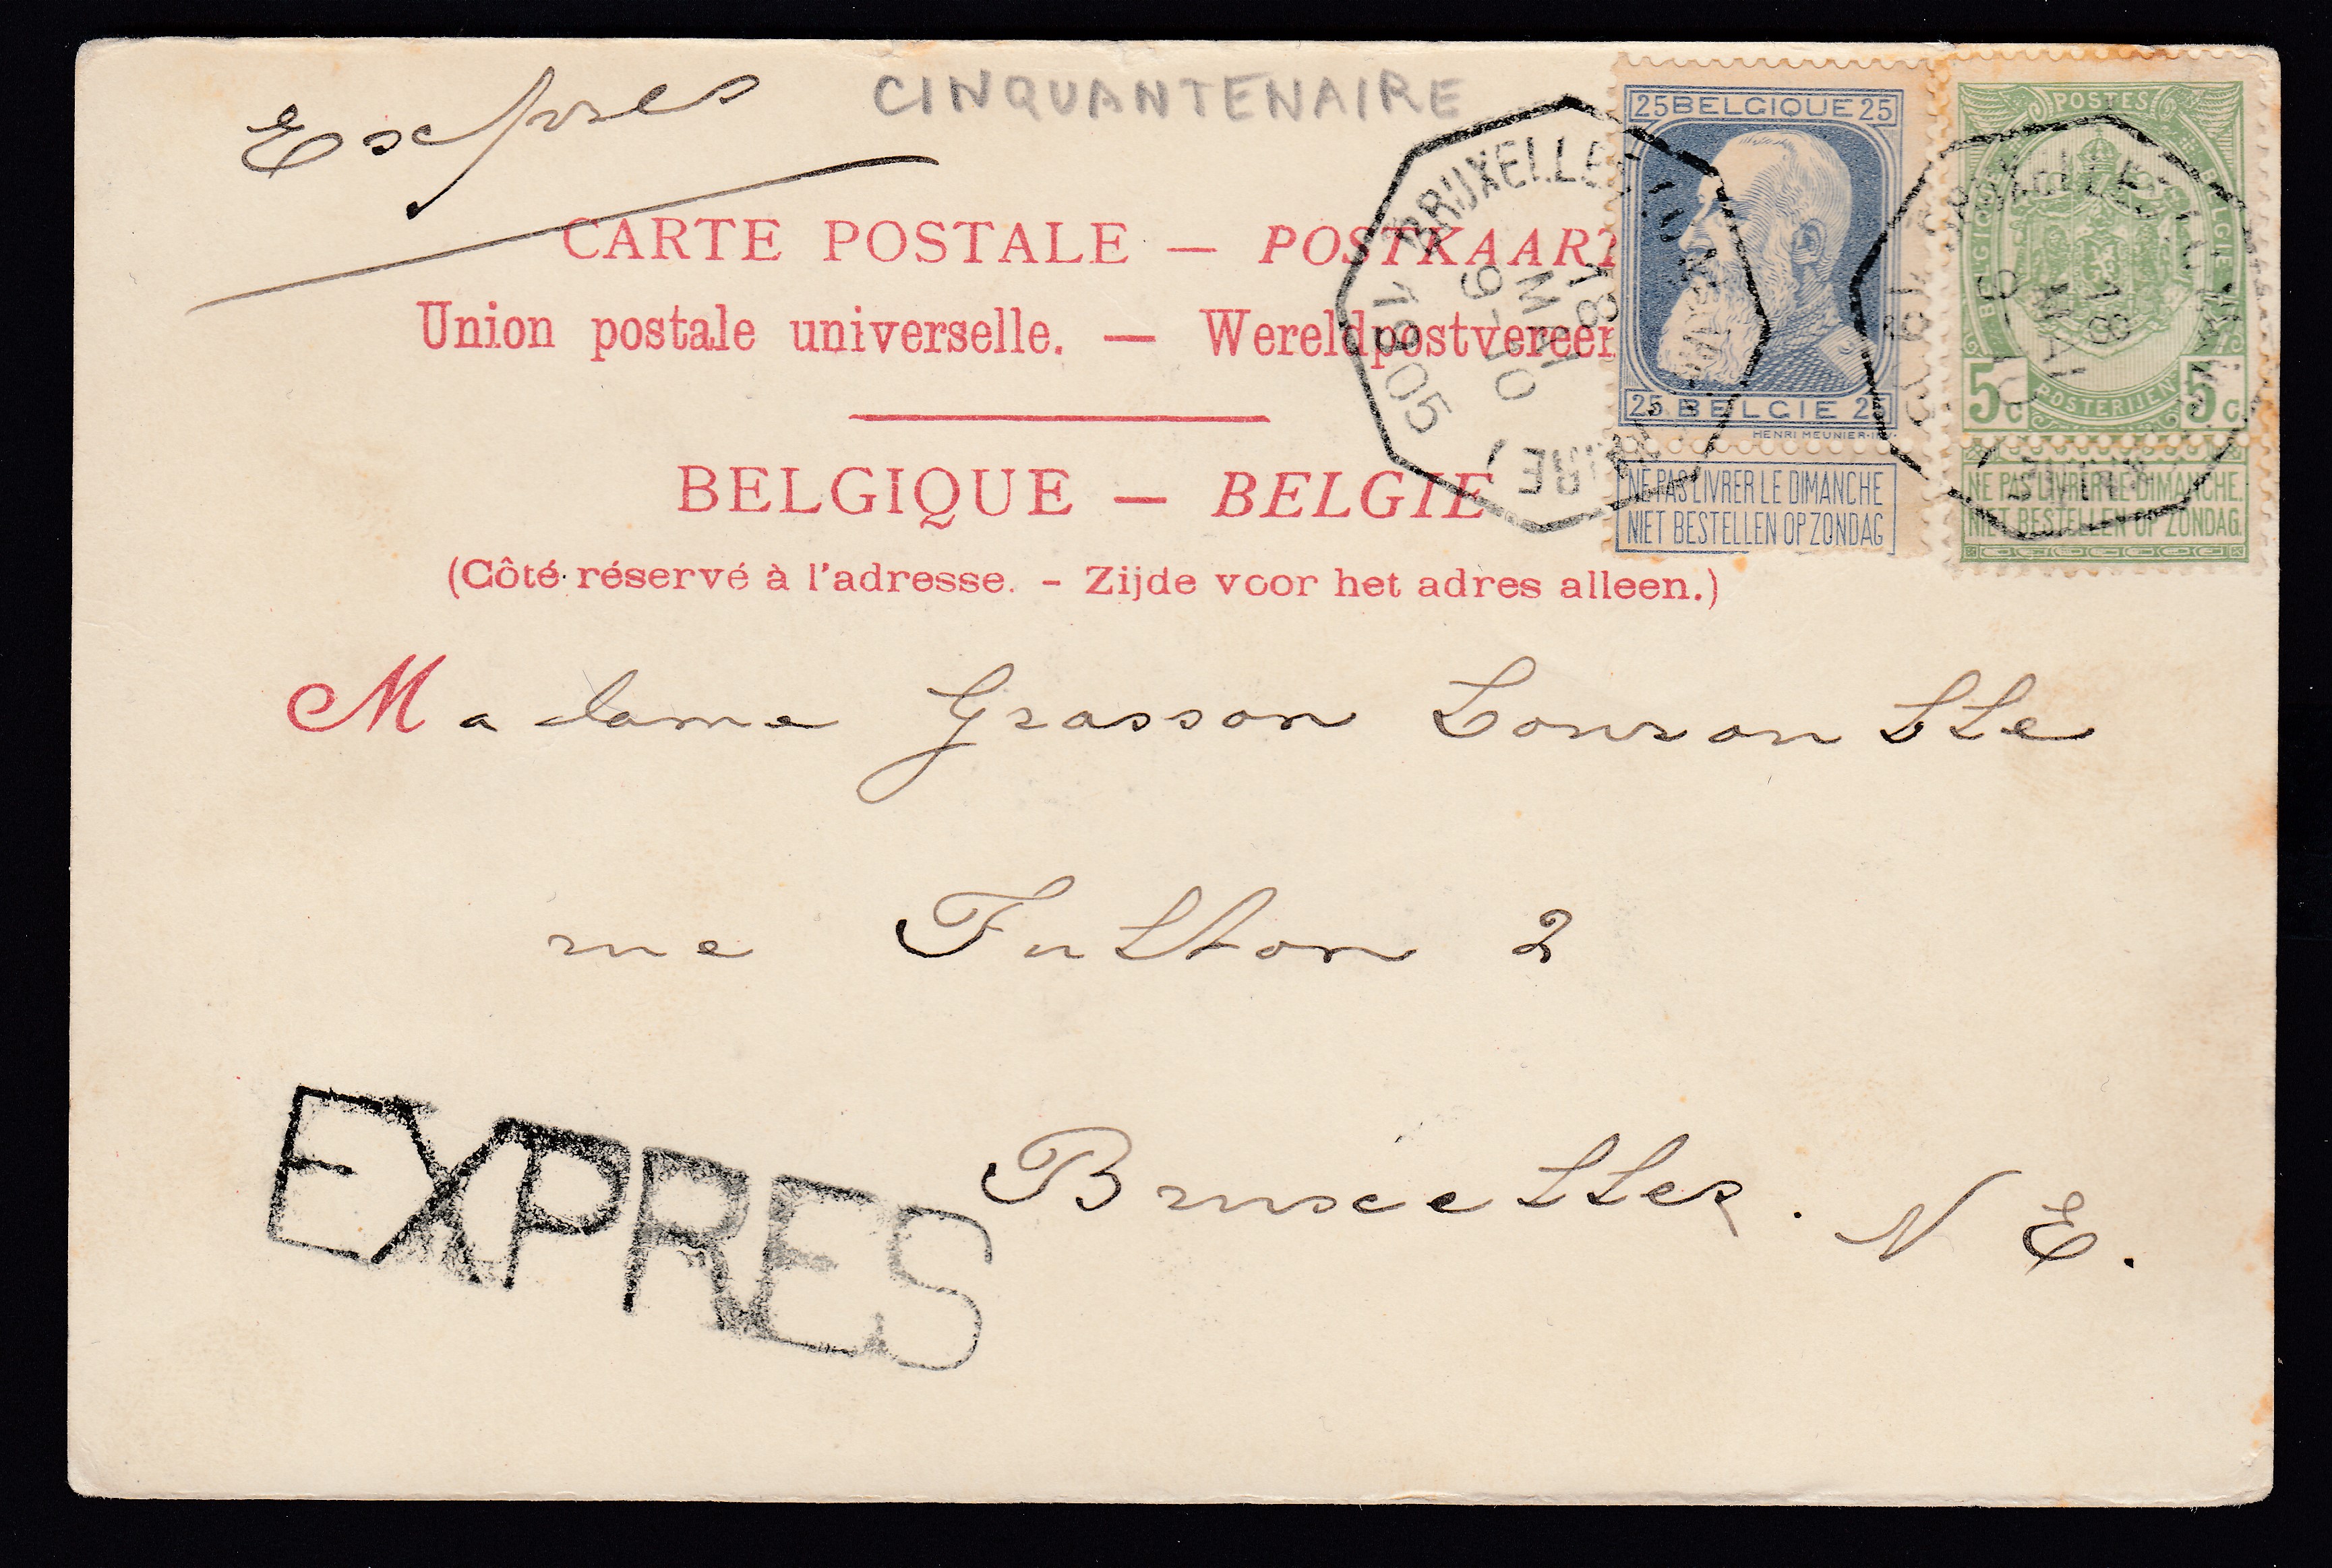 Expres
CINQUANTENAIRE
CARTE POSTALE — POSTKAART
Union postale universelle. — Wereldpostvereen
BELGIQUE — BELGIE
(Côté réservé à l'adresse. - Zijde voor het adres alleen.)
25 BELGIQUE 25
25 BELGIE 25
HENRI MEUNIER·INV·
NE PAS LIVRER LE DIMANCHE
NIET BESTELLEN OP ZONDAG
POSTES
BELGIQUE
BELGIE
5c 5c
POSTERIJEN
NE PAS LIVRER LE DIMANCHE.
NIET BESTELLEN OP ZONDAG.
BRUXELLES
18
MAI
9-10
1905
BRUXELLES
18
MAI
9-10
Madame Grasson
rue Fulton 2
Bruxelles. N E.
EXPRES